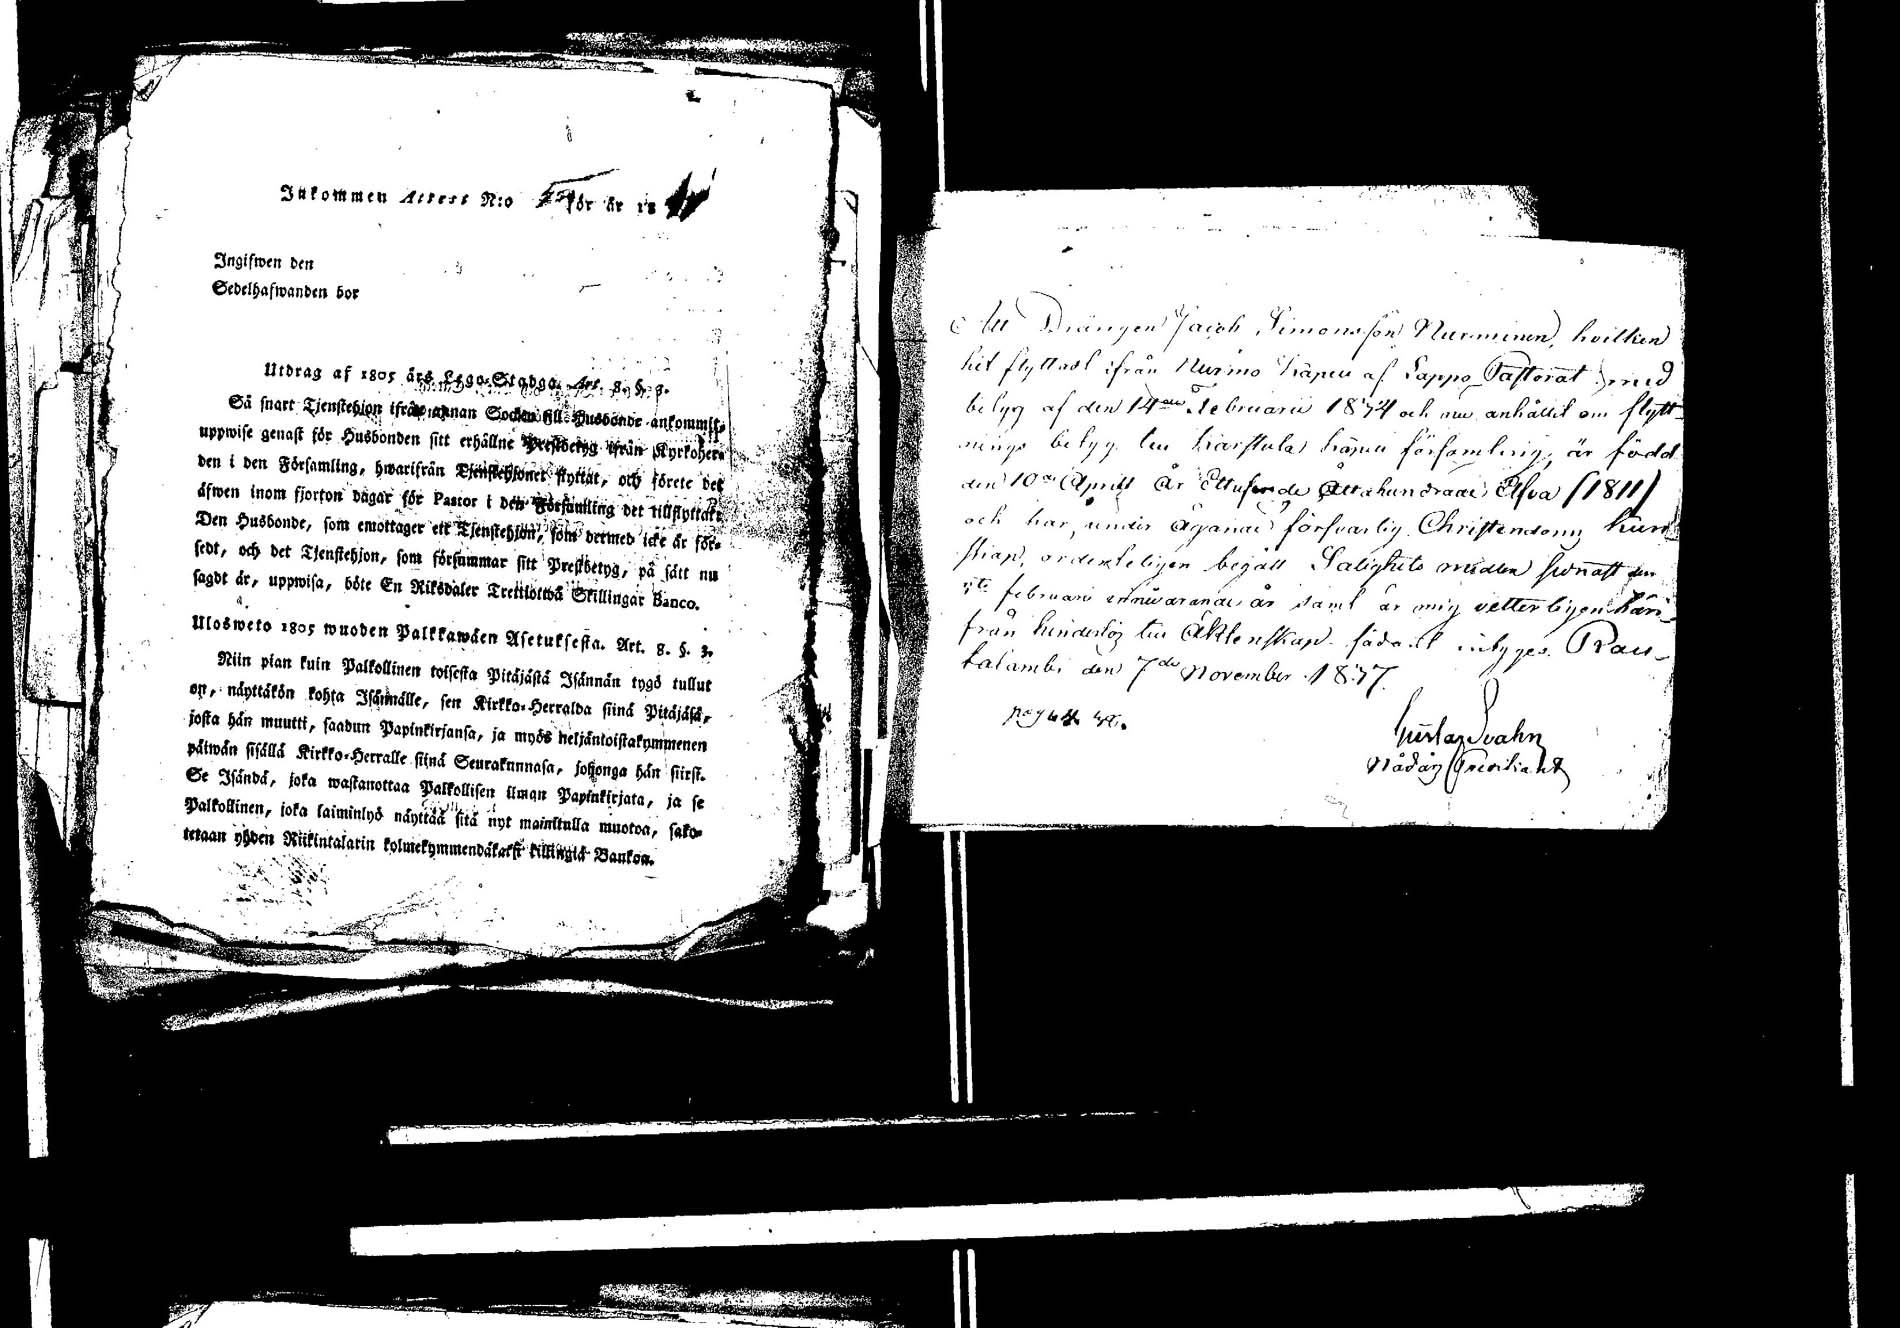 Inkommen Attest N:o för år 18
Ingifwen den
Sedelhafwanden bor
Utdrag af 1805 års Lego-Stadga. Art. 8. §. 3.
Så snart Tjenstehjon ifrån annan Socken till Husbonde ankommit,
uppwise genast för Husbonden sitt erhållne Prestbetyg ifrån Kyrkoher-
den i den Församling, hwarifrån Tjenstehjonet flyttat, och förete det
äfwen inom fjorton dagar för Pastor i den Församling det tillflyttat.
Den Husbonde, som emottager ett Tjenstehjon, som dermed icke är för-
sedt, och det Tjenstehjon, som försummar sitt Prestbetyg, på sätt nu
sagdt är, uppwisa, böte En Riksdaler Trettiotwå Skillingar Banco.
Ulosweto 1805 wuoden Palkkawäen Asetuksesta. Art. 8. §. 3.
Niin pian kuin Palkollinen toisesta Pitäjästä Isännän tygö tullut
on, näyttäkön kohta Isännälle, sen Kirkko-Herralda siinä Pitäjäsä,
josta hän muutti, saadun Papinkirjansa, ja myös neljäntoistakymmenen
päiwän sisällä Kirkko-Herralle siinä Seurakunnasa, johonga hän siirst.
Se Isändä, joka wastanottaa Palkollisen ilman Papinkirjata, ja se
Palkollinen, joka laiminlyö näyttää sitä nyt mainitulla muotoa, sako-
tetaan yhden Riikintalarin kolmekymmendäkaksi killingiä Bankoa.
Att Drängen Jacob Simonsson Nurminen, hvilken
hit flyttadt ifrån Nurmo Capell af Lappo Pastorat med
betyg af den 14de Februarii 1834 och nu anhållit om flytt-
nings betyg till Karstula Capell församling, är född
den 10de Aprill År Ettusende Åttahundrade Elfva (1811)
och har, under ägande försvarlig Christendoms kun-
skap, ordenteligen begått Salighets medlen sednast den
5te februari innevarande år samt är mig vetterligen häri-
från hinderlös till Äktenskap sådant intyges. Rau-
talambi den 7de November 1837.
Gustaf Svahn
Nådårs Predikant